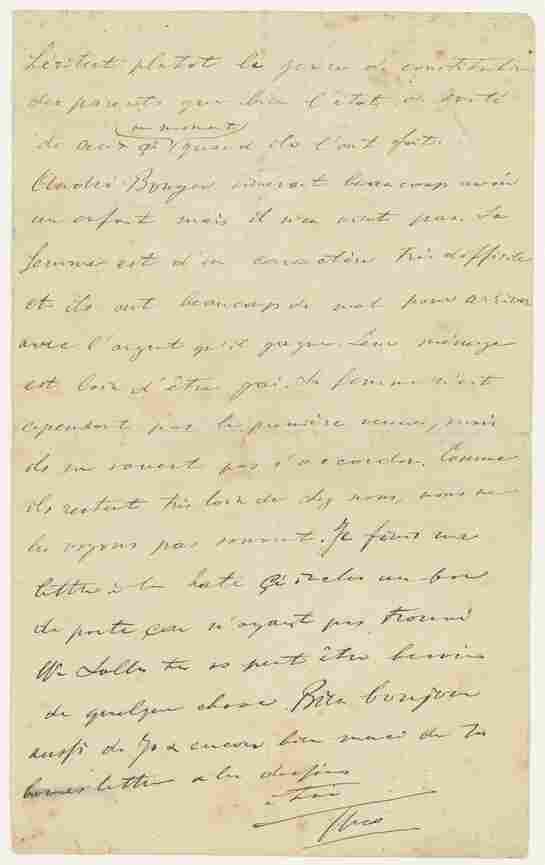 c'est plutôt le genre de constitution
des parents que bien l'état de santé
au moment
de ceux qi quand ils l'ont fait.
André Bonger aimerait beaucoup avoir
un enfant mais il n'en vient pas. Sa
femme est d'un caractère très difficile
et ils ont beaucoup de mal pour arriver
avec l'argent qu'il gagne. Leur ménage
est loin d'être gai. Sa femme n'est
cependant pas la première venue, mais
ils ne savent pas s'accorder. Comme
ils restent très loin de chez nous, nous ne
les voyons pas souvent. Je finis ma
lettre à la hate Ci inclus un bon
de poste car n'ayant pas trouvé
tu as peut être besoin
de quelque chose. Bien bonjour
aussi de Jo & encore bien merci de ta
bonne lettre & les dessins
à toi
Theo